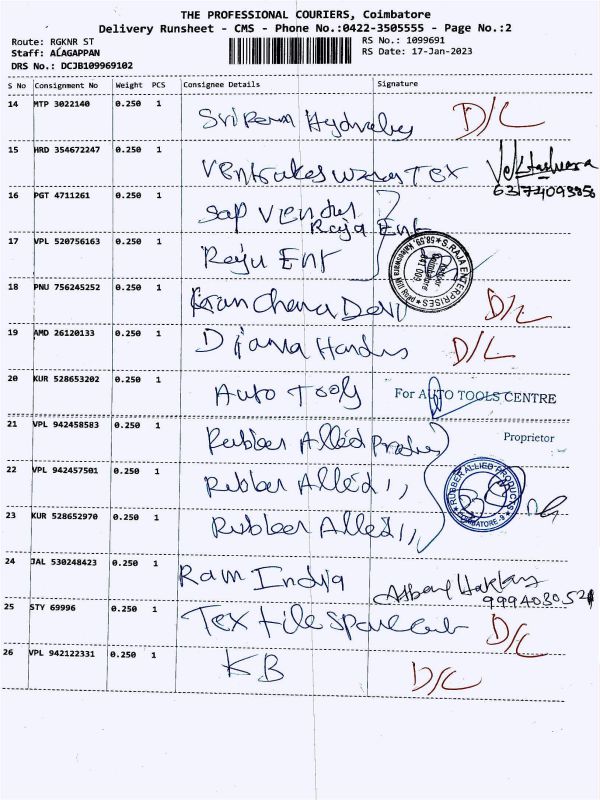 THE PROFESSIONAL COURIERS, Coimbatore
Delivery Runsheet - CMS - Phone No.:0422-3505555 - Page No.:2
Route: RGKNR ST
RS No.: 1099691
Staff: ALAGAPPAN
RS Date: 17-Jan-2023
DRS No.: DCJB109969102
S No Consignment No Weight PCS Consignee Details Signature
14 MTP 3022140 0.250 1 D/C
15 HRD 354672247 0.250 1 Tex
16 PGT 4711261 0.250 1 Sap Vendus
Raja Ent
17 VPL 520756163 0.250 1 Raju Ent
S.RAJA ENTERPRISES
18 PNU 756245252 0.250 1 Devi D/C
19 AMD 26120133 0.250 1 D/C
20 KUR 528653202 0.250 1 Auto Tools For AUTO TOOLS CENTRE
Proprietor
21 VPL 942458583 0.250 1 Rubber Allied
22 VPL 942457501 0.250 1 Rubber Allied ,,
RUBBER ALLIED PRODUCTS COIMBATORE-9
23 KUR 528652970 0.250 1 Rubber Allied ,,
24 JAL 530248423 0.250 1 Ram India
25 STY 69996 0.250 1 Textile D/C
26 VPL 942122331 0.250 1 KB D/C